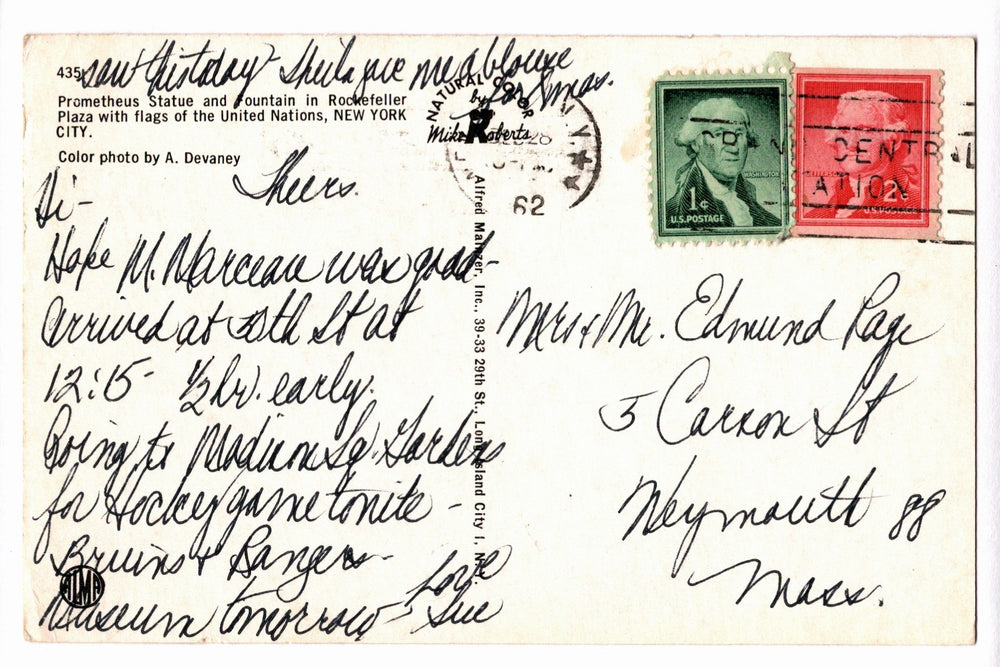 saw this today - Sheila gave me a blouse
for Xmas.
435
Prometheus Statue and Fountain in Rockefeller
Plaza with flags of the United Nations, NEW YORK
CITY.
Color photo by A. Devaney
NATURAL COLOR
by
Mike Roberts
N.Y.
28
62
GRAND CENTRAL
STATION
WASHINGTON
1¢
U.S. POSTAGE
JEFFERSON
2¢
U.S. POSTAGE
Sheers.
Hi-
Hope M. Marceau was good-
Arrived at 50th St at
12:15- ½ hr. early.
Going to Madison Sq. Gardens
for Hockey game tonite -
Bruins & Rangers-
Museum tomorrow -
Love
Sue
ALMA
Alfred Mainzer, Inc., 39-33 29th St., Long Island City 1, N.Y.
Mrs & Mr. Edmund Page
5 Carson St
Weymouth 88
Mass.